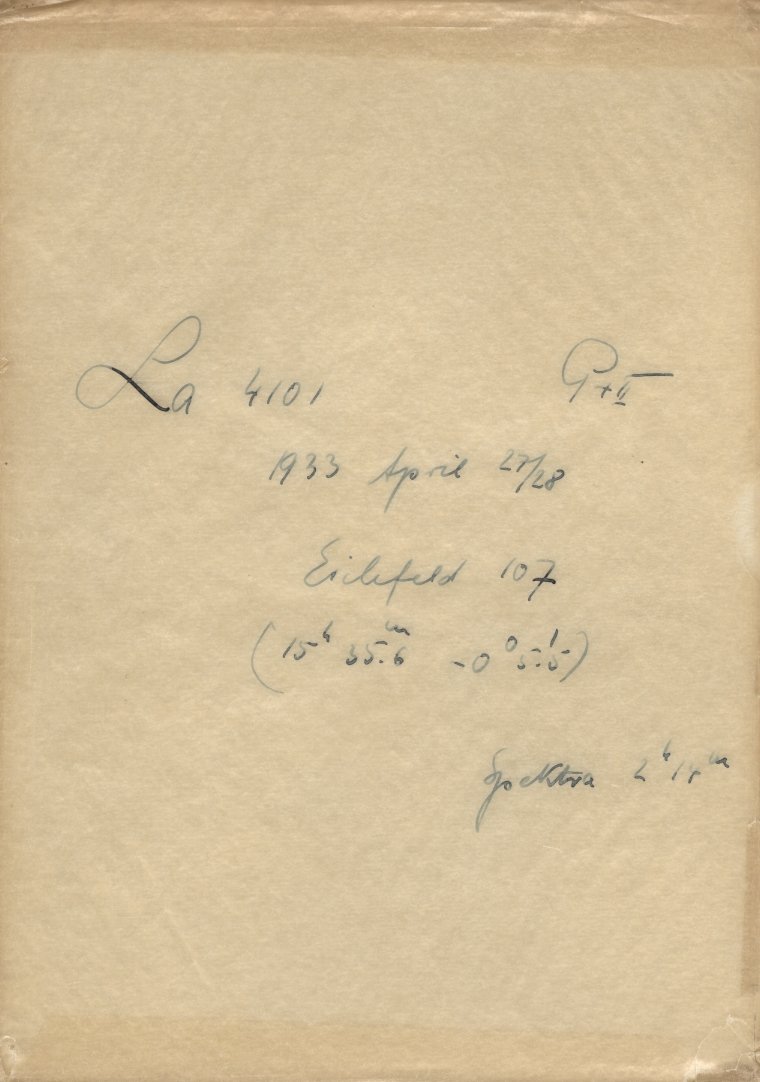 La 4101 P+II
1933 April 27/28
Eichfeld 107
(15h 35.m6 -0° 5.'5)
Spektra 2h 15m